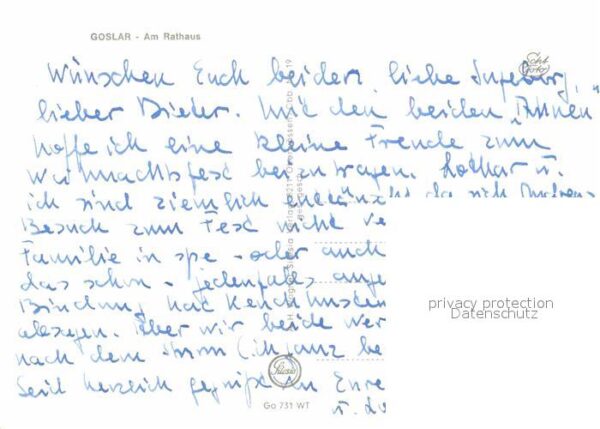 GOSLAR - Am Rathaus
Echt Foto
Wünschen Euch beiden, liebe Ingeborg,
lieber Dieter. Mit den beiden
hoffe ich eine kleine Freude zum
Weihnachtsfest beizutragen. Lothar u.
ich sind ziemlich da sich
Besuch zum Fest nicht ve
Familie in spe - oder auch
das schon - jedenfalls ange
Bindung nach
absagen. Aber wir beide wer
nach dem Sturm ganz be
Seid herzlich gegrüßt an Eure
u. Lo
privacy protection
Datenschutz
Go 731 WT